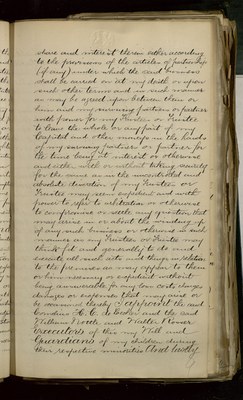 share and interest therein either according
to the provisions of the articles of partnership
(if any) under which the said business
shall be carried on at my death or upon
such other terms and in such manner
as may be agreed upon between them or
him and my surviving partners or partner
with power for my Trustees or Trustee
to leave the whole or any part of my
Capital and other moneys in the hands
of my surviving partners or partner for
the time being at interest or otherwise
and either with or without taking security
for the same as in the uncontrolled and
absolute discretion of my Trustees or
Trustee may seem expedient and with
power to refer to arbitration or otherwise
to compromise or settle any question that
may arise in or about the winding up
of any such business or otherwise in such
manner as my Trustees or Trustee may
think fit and generally to do and
execute all such acts and things in relation
to the premises as may appear to them
or him necessary or expedient without
being answerable for any loss costs charges
damages or expenses that may arise or
be occasioned thereby I appoint the said
H. C. de and the said
William and Walter
Executors of this my Will and
Guardians of my children during
their respective minorities And lastly